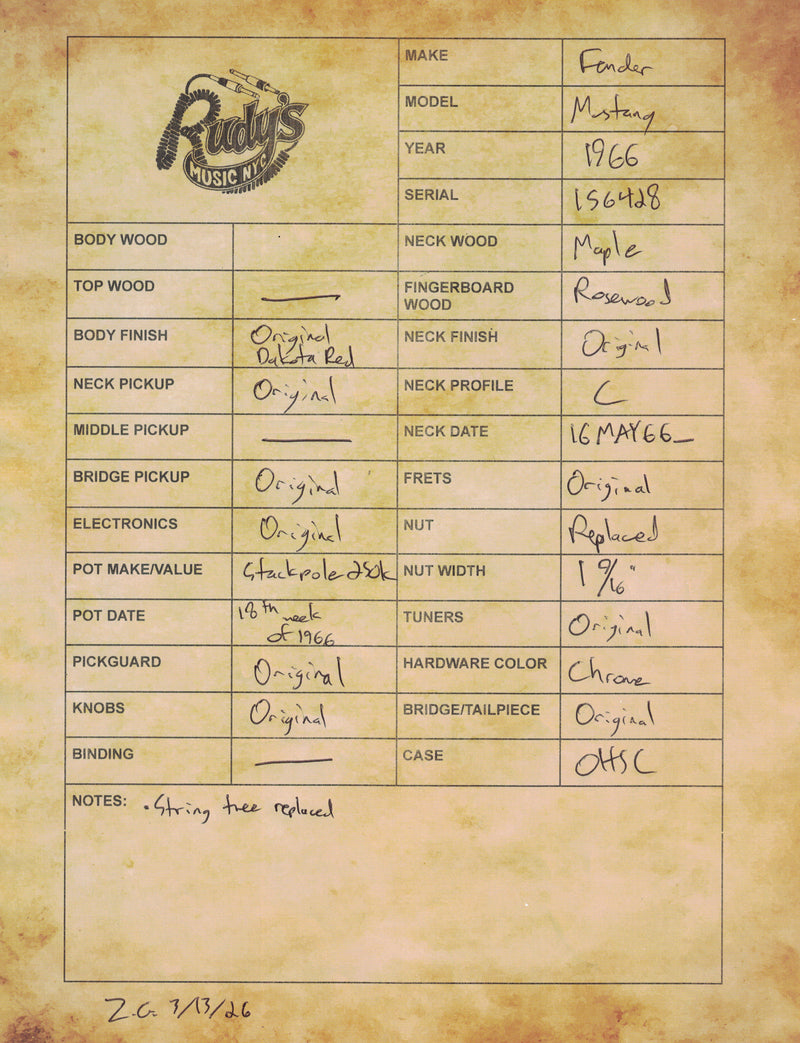 Rudy's
MUSIC NYC
MAKE Fender
MODEL Mustang
YEAR 1966
SERIAL 156428
BODY WOOD
NECK WOOD Maple
TOP WOOD —
FINGERBOARD
WOOD Rosewood
BODY FINISH Original
Dakota Red
NECK FINISH Original
NECK PICKUP Original
NECK PROFILE C
MIDDLE PICKUP —
NECK DATE 16 MAY66_
BRIDGE PICKUP Original
FRETS Original
ELECTRONICS Original
NUT Replaced
POT MAKE/VALUE Stackpole 250k
NUT WIDTH 1 9/16"
POT DATE 18th week
of 1966
TUNERS Original
PICKGUARD Original
HARDWARE COLOR Chrome
KNOBS Original
BRIDGE/TAILPIECE Original
BINDING —
CASE OHSC
NOTES: • String tree replaced
Z.G. 3/13/26